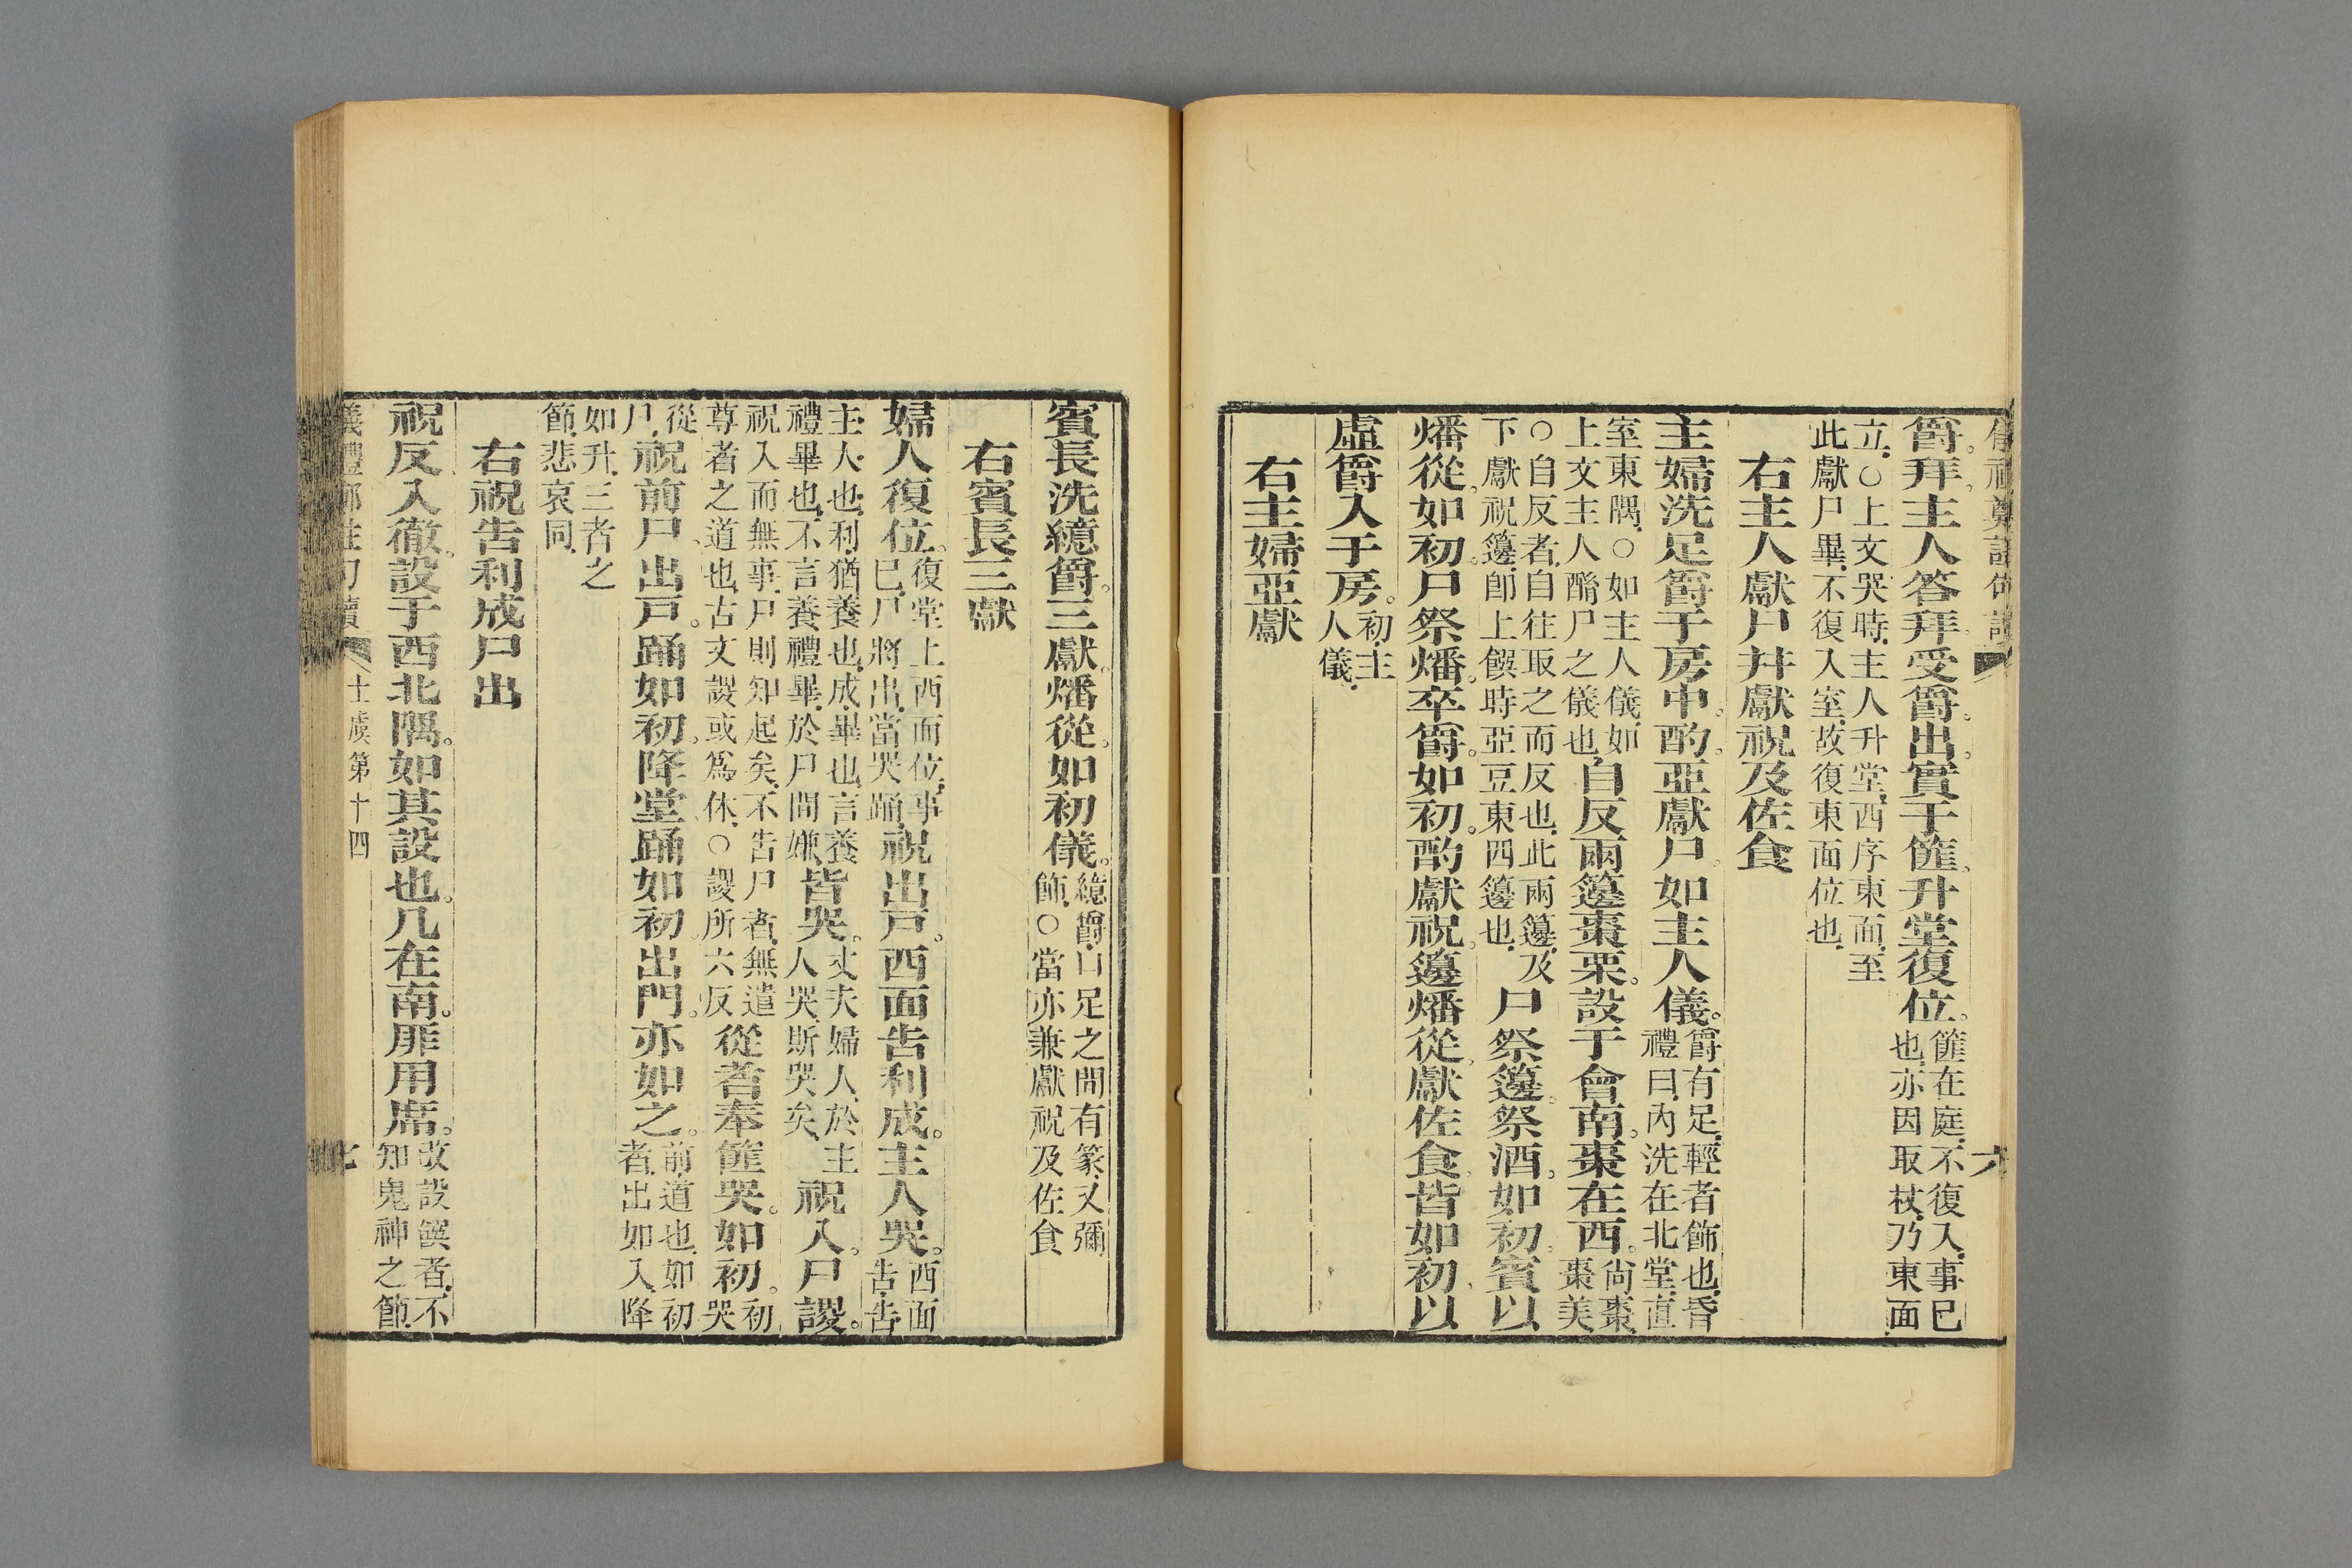 鄭註句讀 六
爵。拜。主人答拜。受爵。出。實于篚。升堂復位。篚在庭。不復入。事已也。亦因取杖。乃東面
立。○上文哭時。主人升堂。西序東面。至此獻尸畢。不復入室。故復東面位也。
右主人獻尸并獻祝及佐食
主婦洗足爵于房中。酌。亞獻尸。如主人儀。爵有足。輕者飾也。昏禮曰。內洗在北堂。直
室東隅。○如主人儀。如上文主人酳尸之儀也。自反兩籩棗栗。設于會南。棗在西。尚棗。棗美。
○自反者。自往取之而反也。此兩籩。及下獻祝籩。卽上饌時亞豆東四籩也。尸祭籩。祭酒。如初。賓以
燔從。如初。尸祭燔。卒爵。如初。酌獻祝。籩燔從。獻佐食。皆如初。以
虛爵入于房。初。主人儀。
右主婦亞獻
賓長洗繶爵。三獻。燔從。如初儀。繶爵。口足之間有篆。又彌飾。○當亦兼獻祝及佐食
右賓長三獻
婦人復位。復堂上西面位。事已。尸將出。當哭踊。祝出戶。西面告利成。主人哭。西面告。告
主人也。利。猶養也。成。畢也。言養禮畢也。不言養禮畢。於尸間嫌。皆哭。丈夫婦人。於主人哭。斯哭矣。祝入。尸謖。
祝入而無事。尸則知起矣。不告尸者。無遣尊者之道也。古文謖或爲休。○謖所六反從者奉篚哭。如初。初哭
從尸。祝前尸。出戶。踊如初。降堂。踊如初。出門。亦如之。前。道也。如初者。出如入。降
如升。三者之節。悲哀同。
右祝告利成尸出
祝反入徹。設于西北隅。如其設也。几在南。厞用席。改設饌者。不知鬼神之節。
儀禮鄭註句讀 士虞第十四 七